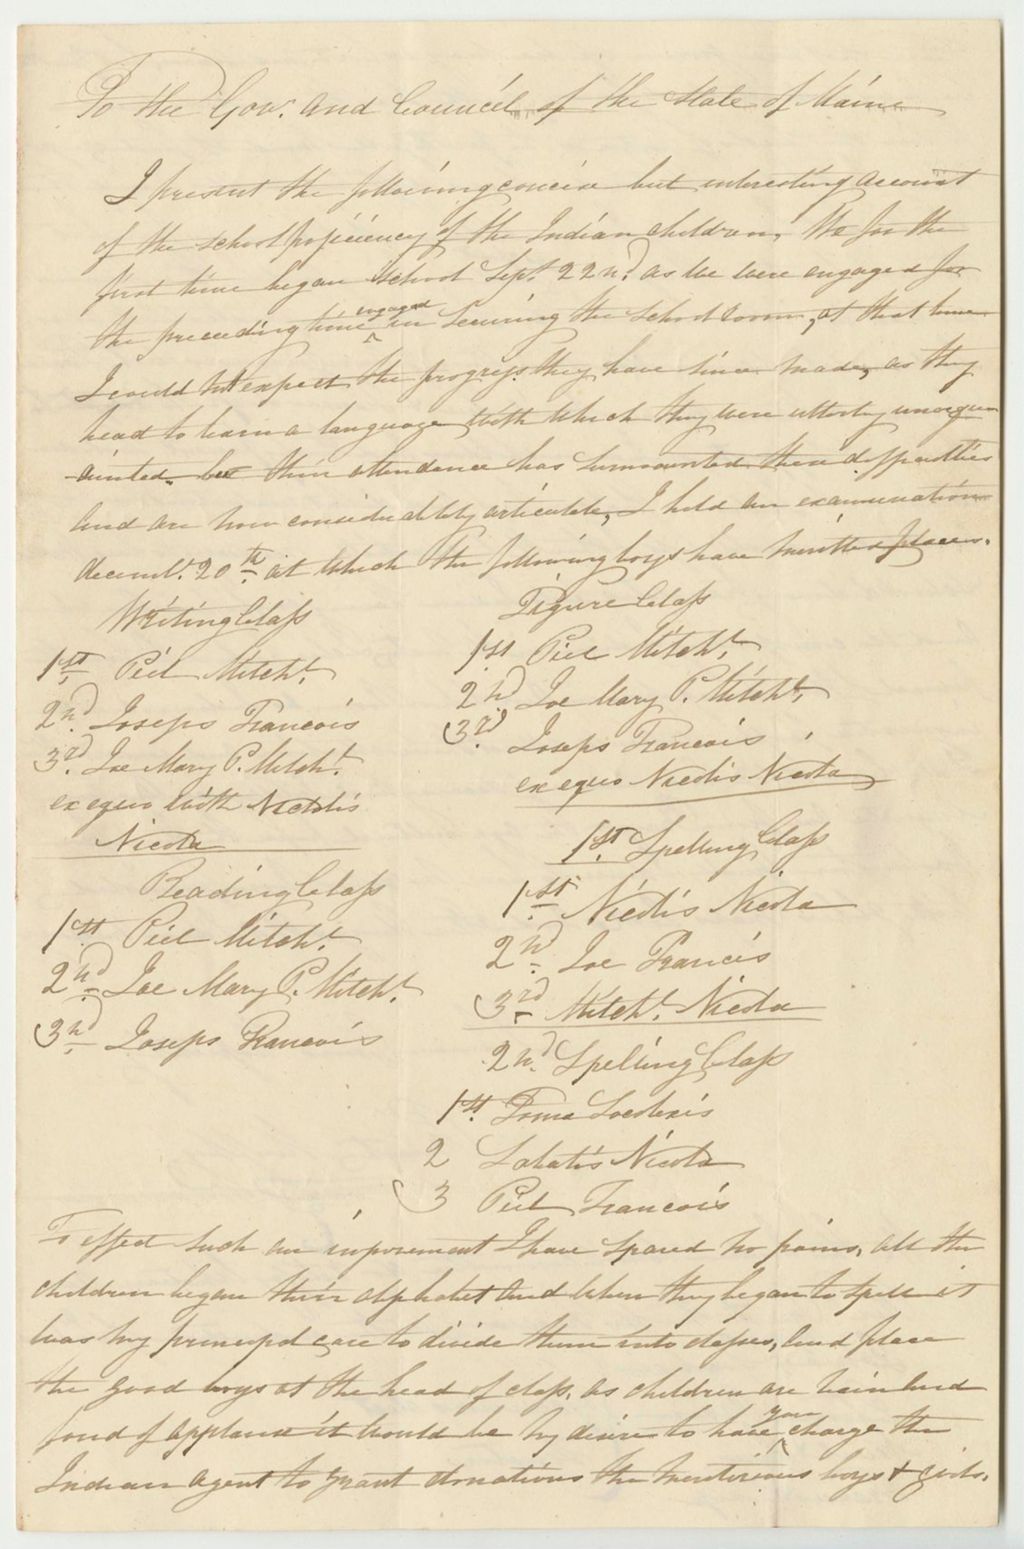 To the Gov.r and Council of the State of Maine
I present the following concise but interesting account
of the school proficiency of the Indian children, We for the
first time began school Sept.r 22nd. as we were engaged for
the preceeding time engaged in securing the school room, at that time
I could not expect the progress they have since made, as they
head to learn a language with which they were utterly unacqua
ainted, but their attendance has surmounted these difficulties
and are now considerably articulate, I held an examination
decemb.r 20th. at which the following boys have merited places.
Writing Class
1st. Piel Mitch.l
2nd. Joseps Francois
3rd. Joe Mary P. Mitch.l
ex equo with Nicolis
Nicola
Reading Class
1st Piel Mitch.l
2nd. Joe Mary P. Mitch.l
3rd. Joseps Francois
Figure Class
1st Piel Mitch.l
2nd. Joe Mary P. Mitch.l
3rd. Joseps Francois
ex equo Nicolis Nicola
1st. Spelling Class
1st. Nicolis Nicola
2nd. Joe Francis
3rd. Mitch.l Nicola
2nd. Spelling Class
1st. Toma Socbexis
2 Sabatis Nicola
3 Piel Francois
To effect such an improvement I have spared no pains, all the
children began their alphabet and when they began to spell it
was my principal care to divide them into classes, and place
the good boys at the head of class, as children are vain and
fond of applause it would be my desire to have you charge the
Indian agent to grant donations the meritorious boys & girls.